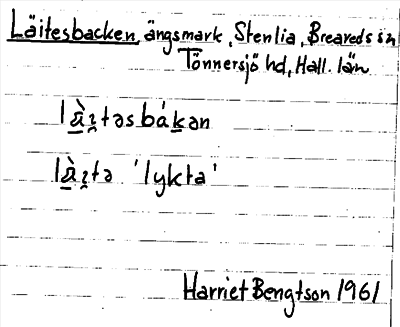 Läitesbacken, ängsmark, Stenlia, Breareds sn
Tönnersjö hd, Hall. län
lä̀i̯təsbákən
lä̀i̯tə 'lykta'
Harriet Bengtson 1961